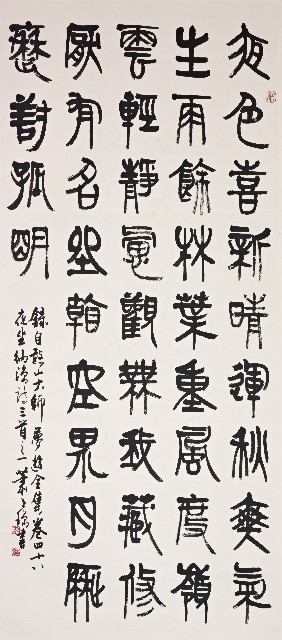 夜色喜新晴秋爽氣
生雨餘林葉重風度嶺
雲輕靜慮觀無我藏修
厭有名坐空界月
對孤明
錄自憨山大師夢遊全集卷四十八
夜坐納涼詩三首之一 蕭書